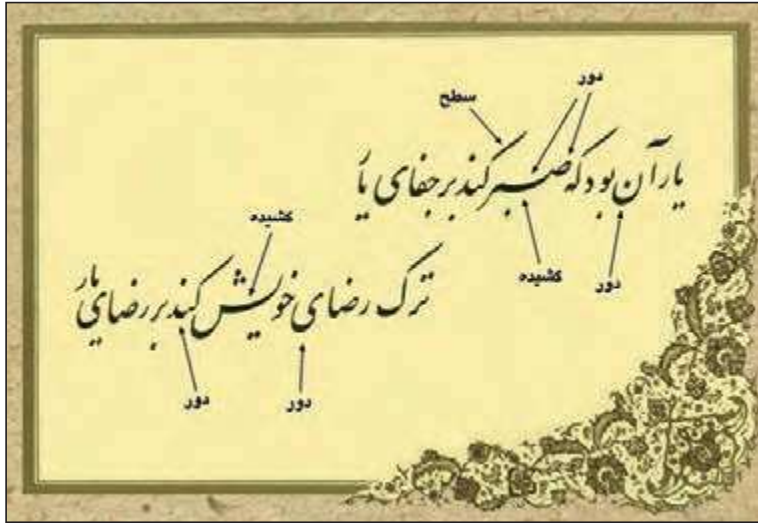 دور
سطح
یار آن بود که صبر کند بر جفای یار
کشیده
دور
کشیده
ترک رضای خویش کند بر رضای یار
دور
دور